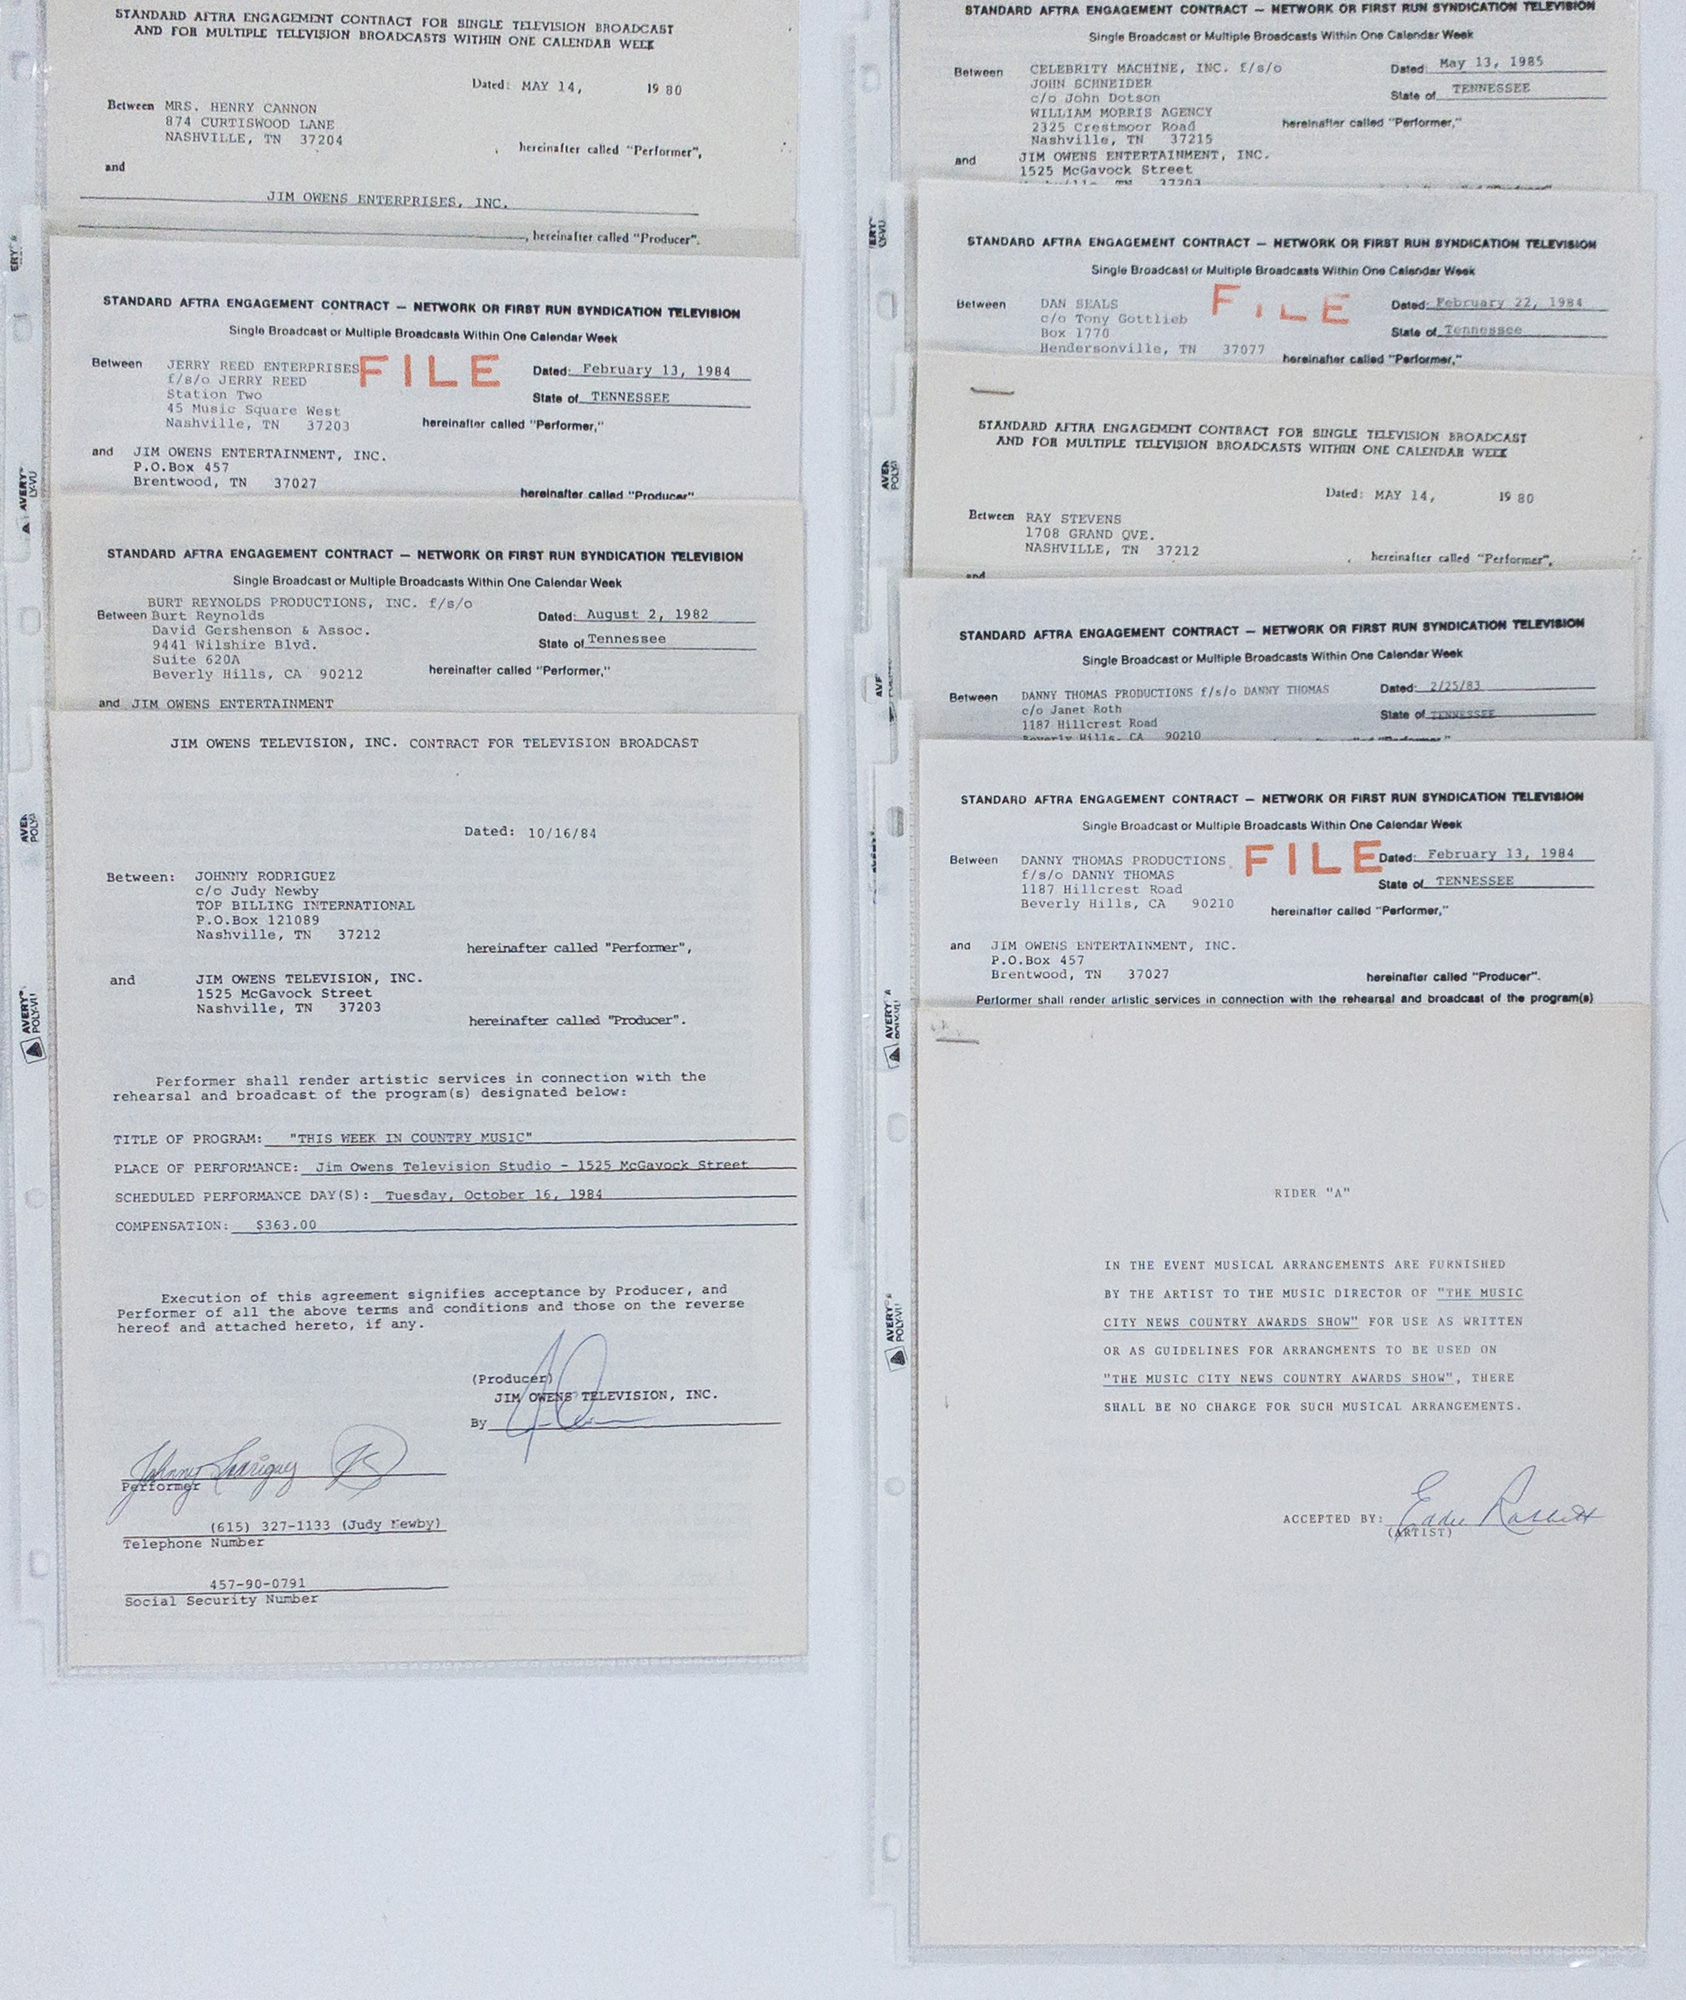 STANDARD AFTRA ENGAGEMENT CONTRACT FOR SINGLE TELEVISION BROADCAST
AND FOR MULTIPLE TELEVISION BROADCASTS WITHIN ONE CALENDAR WEEK
Dated: MAY 14, 19 80
Between MRS. HENRY CANNON
874 CURTISWOOD LANE
NASHVILLE, TN 37204
hereinafter called "Performer",
and
JIM OWENS ENTERPRISES, INC.
, hereinafter called "Producer".
STANDARD AFTRA ENGAGEMENT CONTRACT — NETWORK OR FIRST RUN SYNDICATION TELEVISION
Single Broadcast or Multiple Broadcasts Within One Calendar Week
Between JERRY REED ENTERPRISES FILE Dated: February 13, 1984
f/s/o JERRY REED
Station Two State of TENNESSEE
45 Music Square West
Nashville, TN 37203 hereinafter called "Performer,"
and JIM OWENS ENTERTAINMENT, INC.
P.O.Box 457
Brentwood, TN 37027
hereinafter called "Producer"
STANDARD AFTRA ENGAGEMENT CONTRACT — NETWORK OR FIRST RUN SYNDICATION TELEVISION
Single Broadcast or Multiple Broadcasts Within One Calendar Week
BURT REYNOLDS PRODUCTIONS, INC. f/s/o
Between Burt Reynolds Dated: August 2, 1982
David Gershenson & Assoc.
9441 Wilshire Blvd. State of Tennessee
Suite 620A
Beverly Hills, CA 90212 hereinafter called "Performer,"
and JIM OWENS ENTERTAINMENT
JIM OWENS TELEVISION, INC. CONTRACT FOR TELEVISION BROADCAST
Dated: 10/16/84
Between: JOHNNY RODRIGUEZ
c/o Judy Newby
TOP BILLING INTERNATIONAL
P.O.Box 121089
Nashville, TN 37212
hereinafter called "Performer",
and JIM OWENS TELEVISION, INC.
1525 McGavock Street
Nashville, TN 37203
hereinafter called "Producer".
Performer shall render artistic services in connection with the
rehearsal and broadcast of the program(s) designated below:
TITLE OF PROGRAM: "THIS WEEK IN COUNTRY MUSIC"
PLACE OF PERFORMANCE: Jim Owens Television Studio - 1525 McGavock Street
SCHEDULED PERFORMANCE DAY(S): Tuesday, October 16, 1984
COMPENSATION: $363.00
Execution of this agreement signifies acceptance by Producer, and
Performer of all the above terms and conditions and those on the reverse
hereof and attached hereto, if any.
(Producer)
JIM OWENS TELEVISION, INC.
By
Performer
(615) 327-1133 (Judy Newby)
Telephone Number
457-90-0791
Social Security Number
STANDARD AFTRA ENGAGEMENT CONTRACT — NETWORK OR FIRST RUN SYNDICATION TELEVISION
Single Broadcast or Multiple Broadcasts Within One Calendar Week
Between CELEBRITY MACHINE, INC. f/s/o Dated: May 13, 1985
JOHN SCHNEIDER
c/o John Dotson State of TENNESSEE
WILLIAM MORRIS AGENCY
2325 Crestmoor Road hereinafter called "Performer,"
Nashville, TN 37215
and JIM OWENS ENTERTAINMENT, INC.
1525 McGavock Street
STANDARD AFTRA ENGAGEMENT CONTRACT — NETWORK OR FIRST RUN SYNDICATION TELEVISION
Single Broadcast or Multiple Broadcasts Within One Calendar Week
Between DAN SEALS FILE Dated: February 22, 1984
c/o Tony Gottlieb
Box 1770 State of Tennessee
Hendersonville, TN 37077 hereinafter called "Performer,"
STANDARD AFTRA ENGAGEMENT CONTRACT FOR SINGLE TELEVISION BROADCAST
AND FOR MULTIPLE TELEVISION BROADCASTS WITHIN ONE CALENDAR WEEK
Dated: MAY 14, 19 80
Between RAY STEVENS
1708 GRAND QVE.
NASHVILLE, TN 37212
hereinafter called "Performer",
and
STANDARD AFTRA ENGAGEMENT CONTRACT — NETWORK OR FIRST RUN SYNDICATION TELEVISION
Single Broadcast or Multiple Broadcasts Within One Calendar Week
Between DANNY THOMAS PRODUCTIONS f/s/o DANNY THOMAS Dated: 2/25/83
c/o Janet Roth
1187 Hillcrest Road State of TENNESSEE
Beverly Hills, CA 90210
STANDARD AFTRA ENGAGEMENT CONTRACT — NETWORK OR FIRST RUN SYNDICATION TELEVISION
Single Broadcast or Multiple Broadcasts Within One Calendar Week
Between DANNY THOMAS PRODUCTIONS FILE Dated: February 13, 1984
f/s/o DANNY THOMAS
1187 Hillcrest Road State of TENNESSEE
Beverly Hills, CA 90210 hereinafter called "Performer,"
and JIM OWENS ENTERTAINMENT, INC.
P.O.Box 457
Brentwood, TN 37027 hereinafter called "Producer".
Performer shall render artistic services in connection with the rehearsal and broadcast of the program(s)
RIDER "A"
IN THE EVENT MUSICAL ARRANGEMENTS ARE FURNISHED
BY THE ARTIST TO THE MUSIC DIRECTOR OF "THE MUSIC
CITY NEWS COUNTRY AWARDS SHOW" FOR USE AS WRITTEN
OR AS GUIDELINES FOR ARRANGMENTS TO BE USED ON
"THE MUSIC CITY NEWS COUNTRY AWARDS SHOW", THERE
SHALL BE NO CHARGE FOR SUCH MUSICAL ARRANGEMENTS.
ACCEPTED BY: Eddie Rabbitt
(ARTIST)
AVERY
POLY-VU
AVERY
POLY-VU
AVERY
POLY-VU